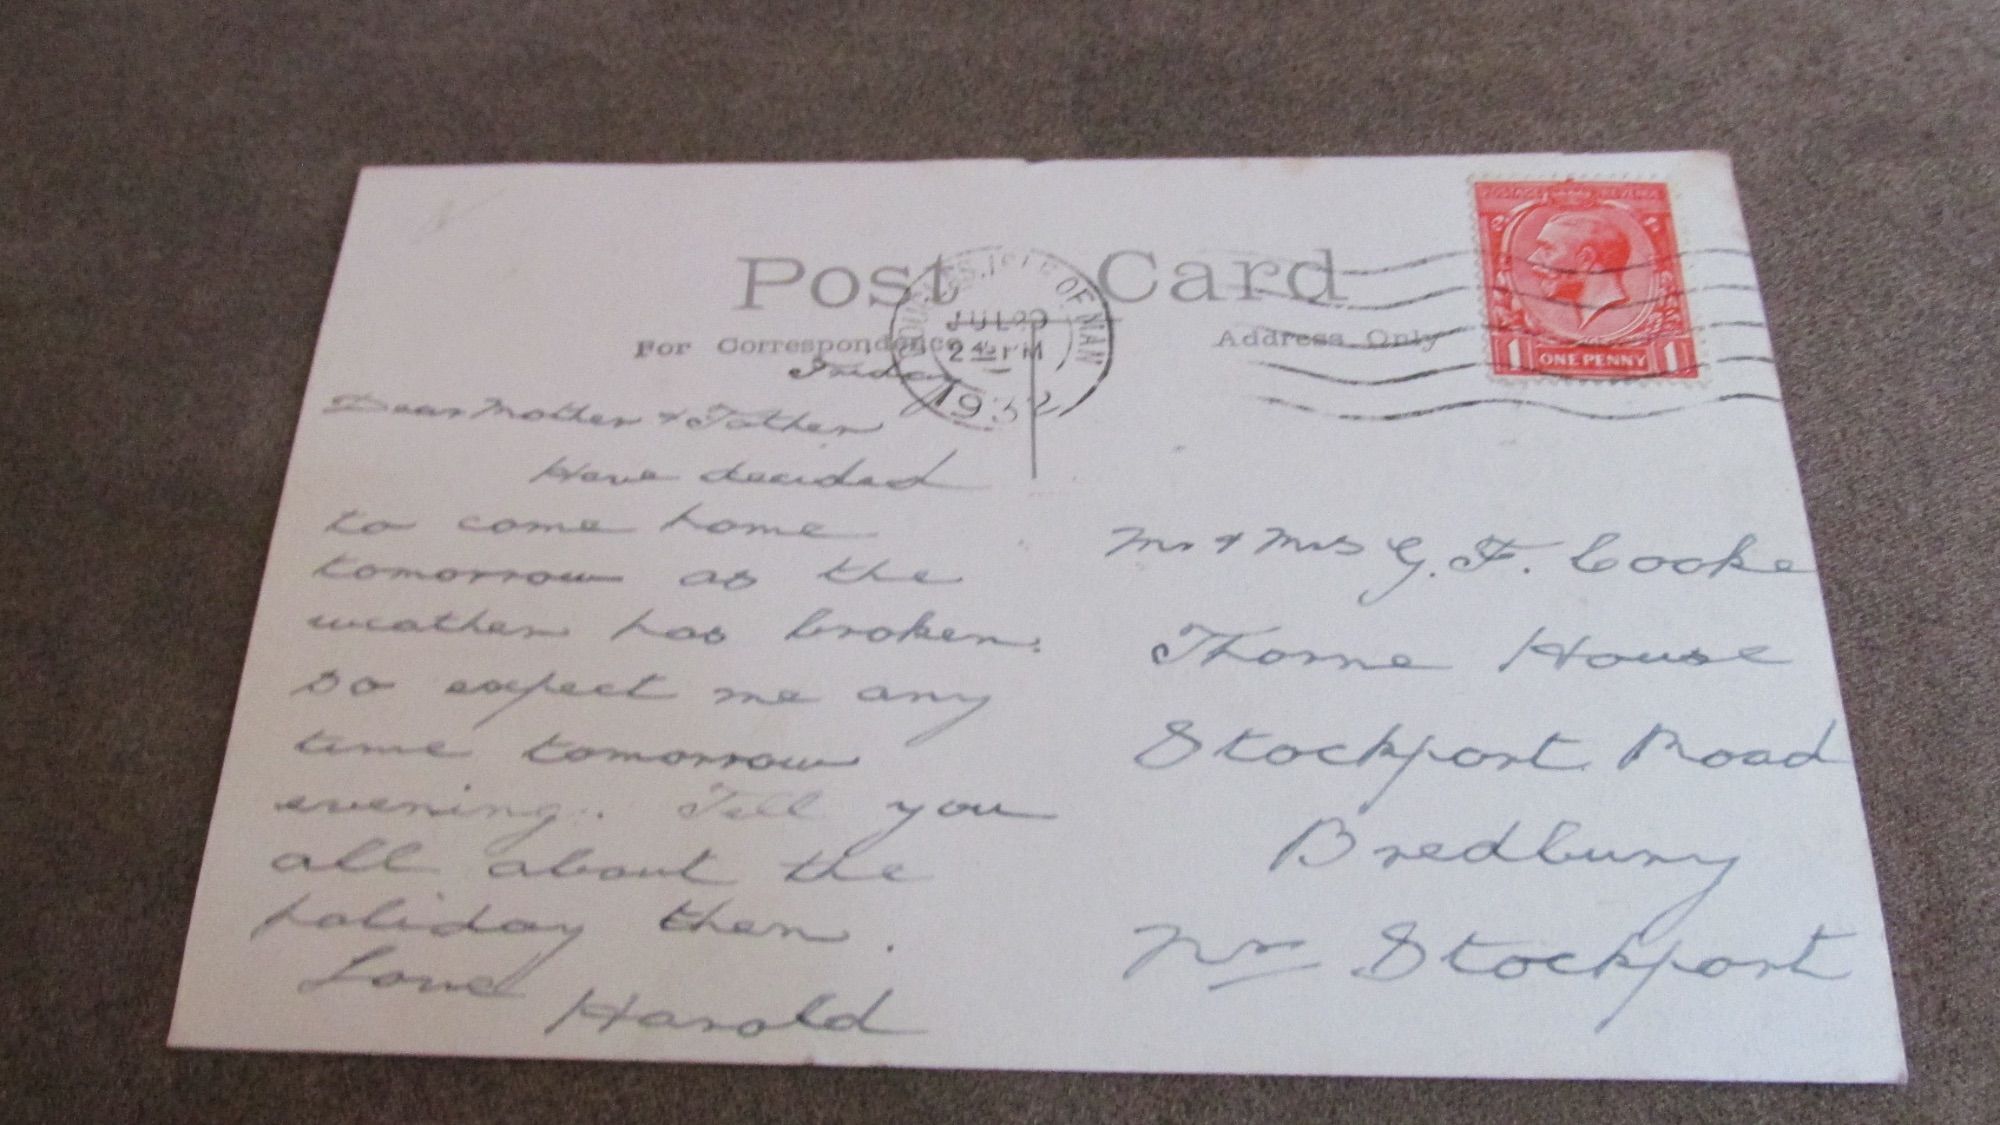 Post Card
For Correspondence
Address Only
POSTAGE REVENUE
1 ONE PENNY 1
DOUGLAS. ISLE OF MAN
JUL 29
2 45 PM
1932
Friday
Dear Mother & Father
Have decided
to come home
tomorrow as the
weather has broken.
so expect me any
time tomorrow
evening. Tell you
all about the
holiday then.
Love Harold
Mr & Mrs G. F. Cooke
Thorne House
Stockport Road
Bredbury
Nr Stockport